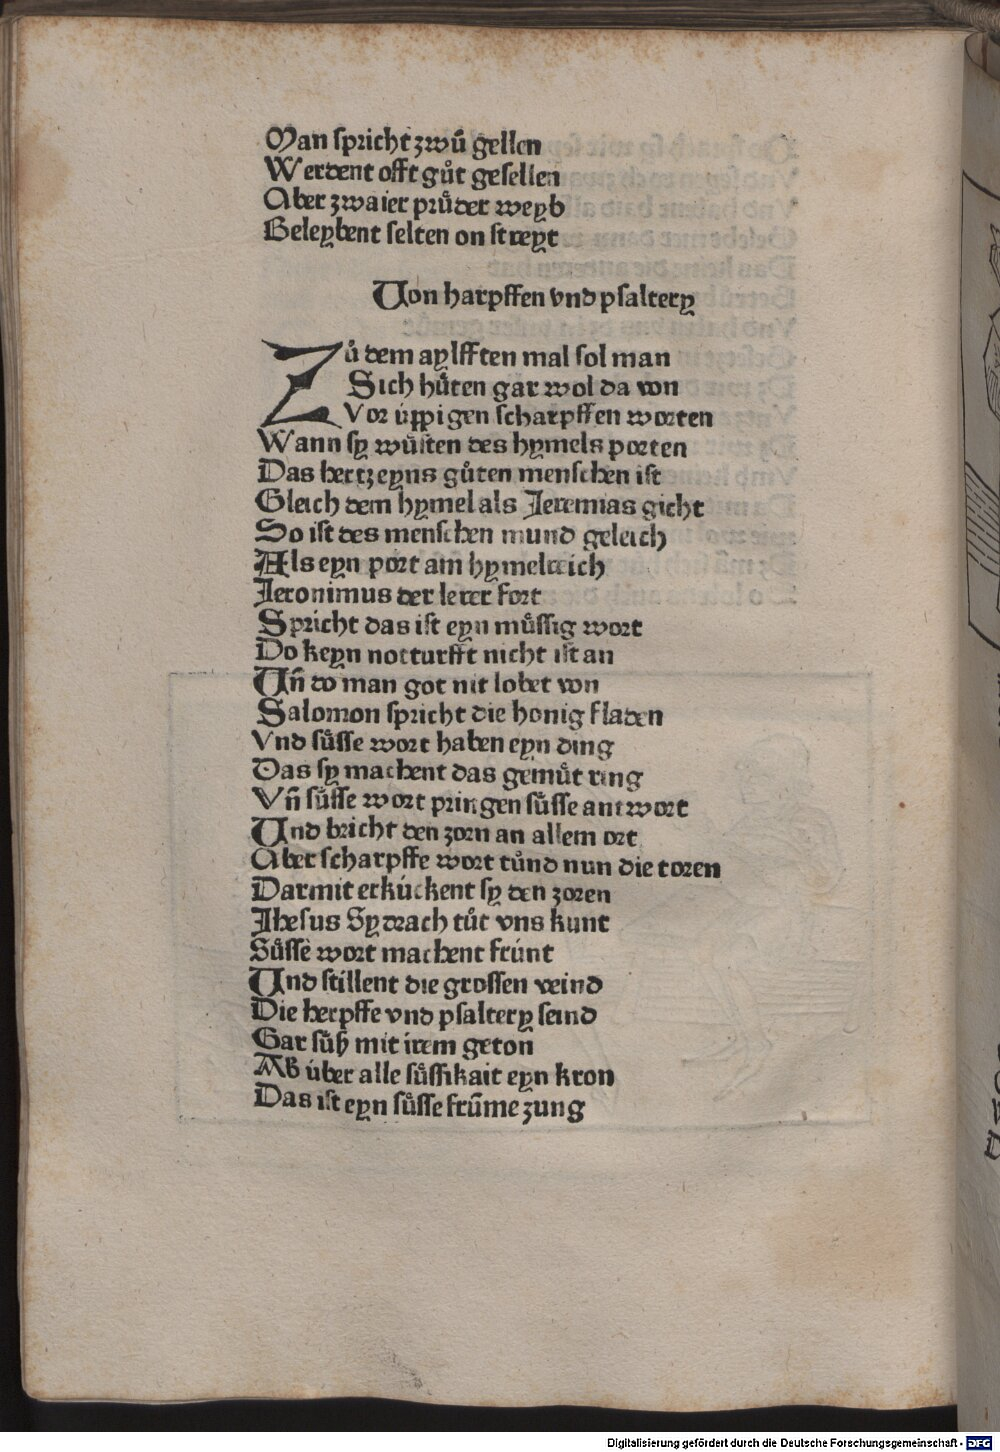 Man spricht zwū gellen
Werdent offt gůt gesellen
Aber zwaier prů̈der weyb
Beleybent selten on streyt
Von harpffen vnd psaltery
Zů dem aylfften mal sol man
Sich hů̈ten gar wol da von
Vor úppigen scharpffen worten
Wann sy wůsten des hymels porten
Das hertz eyns gůten menschen ist
Gleich dem hymel als Jeremias gicht
So ist des menschen mund geleich
Als eyn port am hymelreich
Jeronimus der lerer fort
Spricht das ist eyn můssig wort
Do keyn notturfft nicht ist an
Vn̄ do man got nit lobet von
Salomon spricht die honig fladen
Vnd sů̈sse wort haben eyn ding
Das sy machent das gemů̈t ring
Vn̄ sů̈sse wort pringen sů̈sse antwort
Vnd bricht den zorn an allem ort
Aber scharpffe wort tůnd nun die toren
Darmit erkúckent sy den zoren
Jhesus Sydrach tůt vns kunt
Sů̈sse wort machent frúnt
Vnd stillent die grossen veind
Die herpffe vnd psaltery seind
Gar sů̈ß mit irem geton
Ab úber alle sů̈ssikait eyn kron
Das ist eyn sů̈sse frūme zung
Digitalisierung gefördert durch die Deutsche Forschungsgemeinschaft - DFG